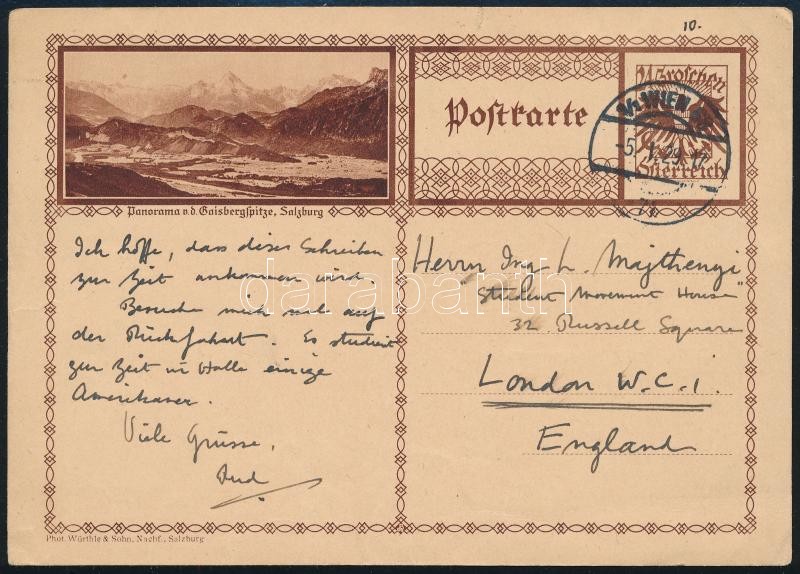 10.
24 Groschen
Österreich
Postkarte
Panorama v. d. Gaisbergspitze, Salzburg
Ich hoffe, dass dieses Schreiben
zur Zeit ankommen wird.
Besuche mich mal auf
der Rückfahrt. Es studiert
zur Zeit in Halle einige
Amerikaner.
Viele Grüsse,
Herrn Ing L. Majthenyi
"Student Movement House"
32. Russell Square
London W.C.1.
England
darabanth
Phot. Würthle & Sohn, Nachf., Salzburg